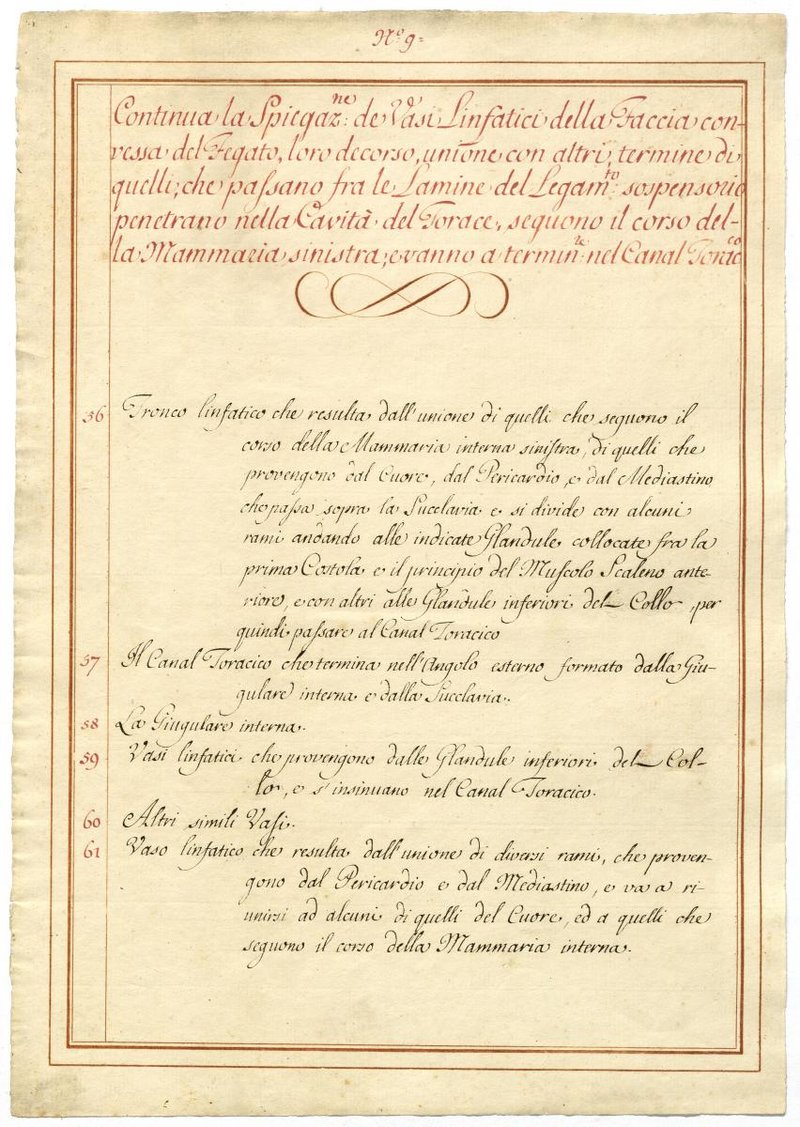 Nº 9=
Continua la Spiegaz.ne de Vasi Linfatici della Faccia con-
vessa del Fegato, loro decorso, unione con altri, termine di
quelli, che passano fra le Lamine del Legam.to sospensorio
penetrano nella Cavità del Torace, seguono il corso del-
la Mammaria sinistra, e vanno a termin.re nel Canal Torac.co
56 Tronco linfatico che resulta dall'unione di quelli che seguono il
corso della Mammaria interna sinistra, di quelli che
provengono dal Cuore, dal Pericardio, e dal Mediastino
che passa sopra la Succlavia e si divide con alcuni
rami andando alle indicate Glandule collocate fra la
prima Costola e il principio del Muscolo Scaleno ante-
riore, e con altri alle Glandule inferiori del Collo, per
quindi passare al Canal Toracico
57 Il Canal Toracico che termina nell'Angolo esterno formato dalla Giu-
gulare interna e dalla Succlavia.
58 La Giugulare interna.
59 Vasi linfatici che provengono dalle Glandule inferiori del Col-
lo, e s'insinuano nel Canal Toracico.
60 Altri simili Vasi.
61 Vaso linfatico che resulta dall'unione di diversi rami, che proven-
gono dal Pericardio e dal Mediastino, e va a ri-
unirsi ad alcuni di quelli del Cuore, ed a quelli che
seguono il corso della Mammaria interna.